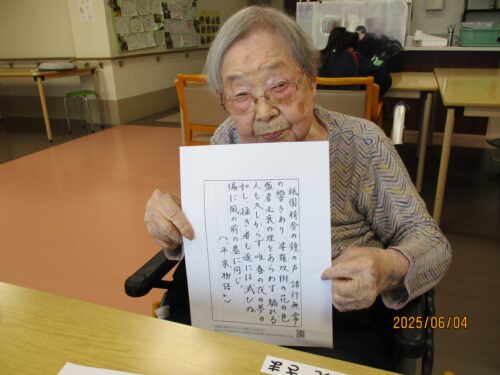 祇園精舎の鐘の声 諸行無常
の響きあり 娑羅双樹の花の色
盛者必衰の理をあらわす 驕れる
人も久しからず 唯春の夜の夢の
如し、猛き者も遂には滅びぬ
偏に風の前の塵に同じ
(平家物語より)
2025/06/04